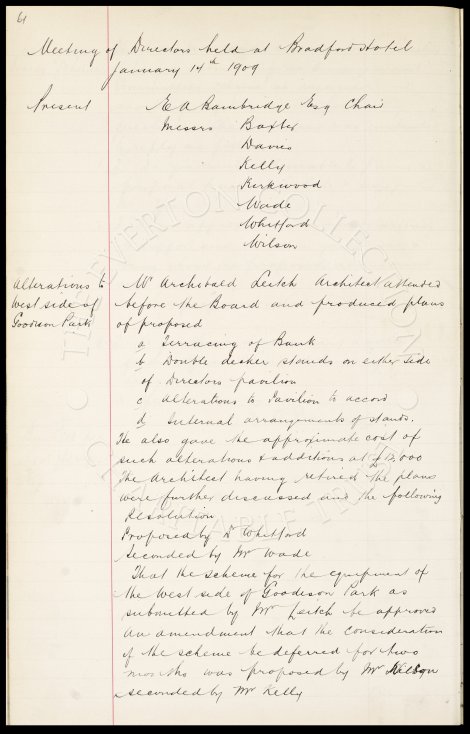 61
Meeting of Directors held at Bradford Hotel
January 14th 1909
Present E A Bainbridge Esq Chair
Messrs Baxter
Davies
Kelly
Kirkwood
Wade
Whitford
Wilson
Alterations to
West side of
Goodison Park
Mr Archibald Leitch Architect attended
before the Board and produced plans
of proposed
a Terracing of Bank
b Double decker stands on either side
of Directors pavilion
c Alterations to Pavilion to accord
d Internal arrangements of stands.
He also gave the approximate cost of
such alterations & additions at £13,000
The Architect having retired the plans
were further discussed and the following
Resolution
Proposed by Dr Whitford
Seconded by Mr Wade
That the scheme for the equipment of
the West side of Goodison Park as
submitted by Mr Leitch be approved
An amendment that the consideration
of the scheme be deferred for two
months was proposed by Mr Wilson
seconded by Mr Kelly
THE EVERTON COLLECTION
CHARITABLE TRUST